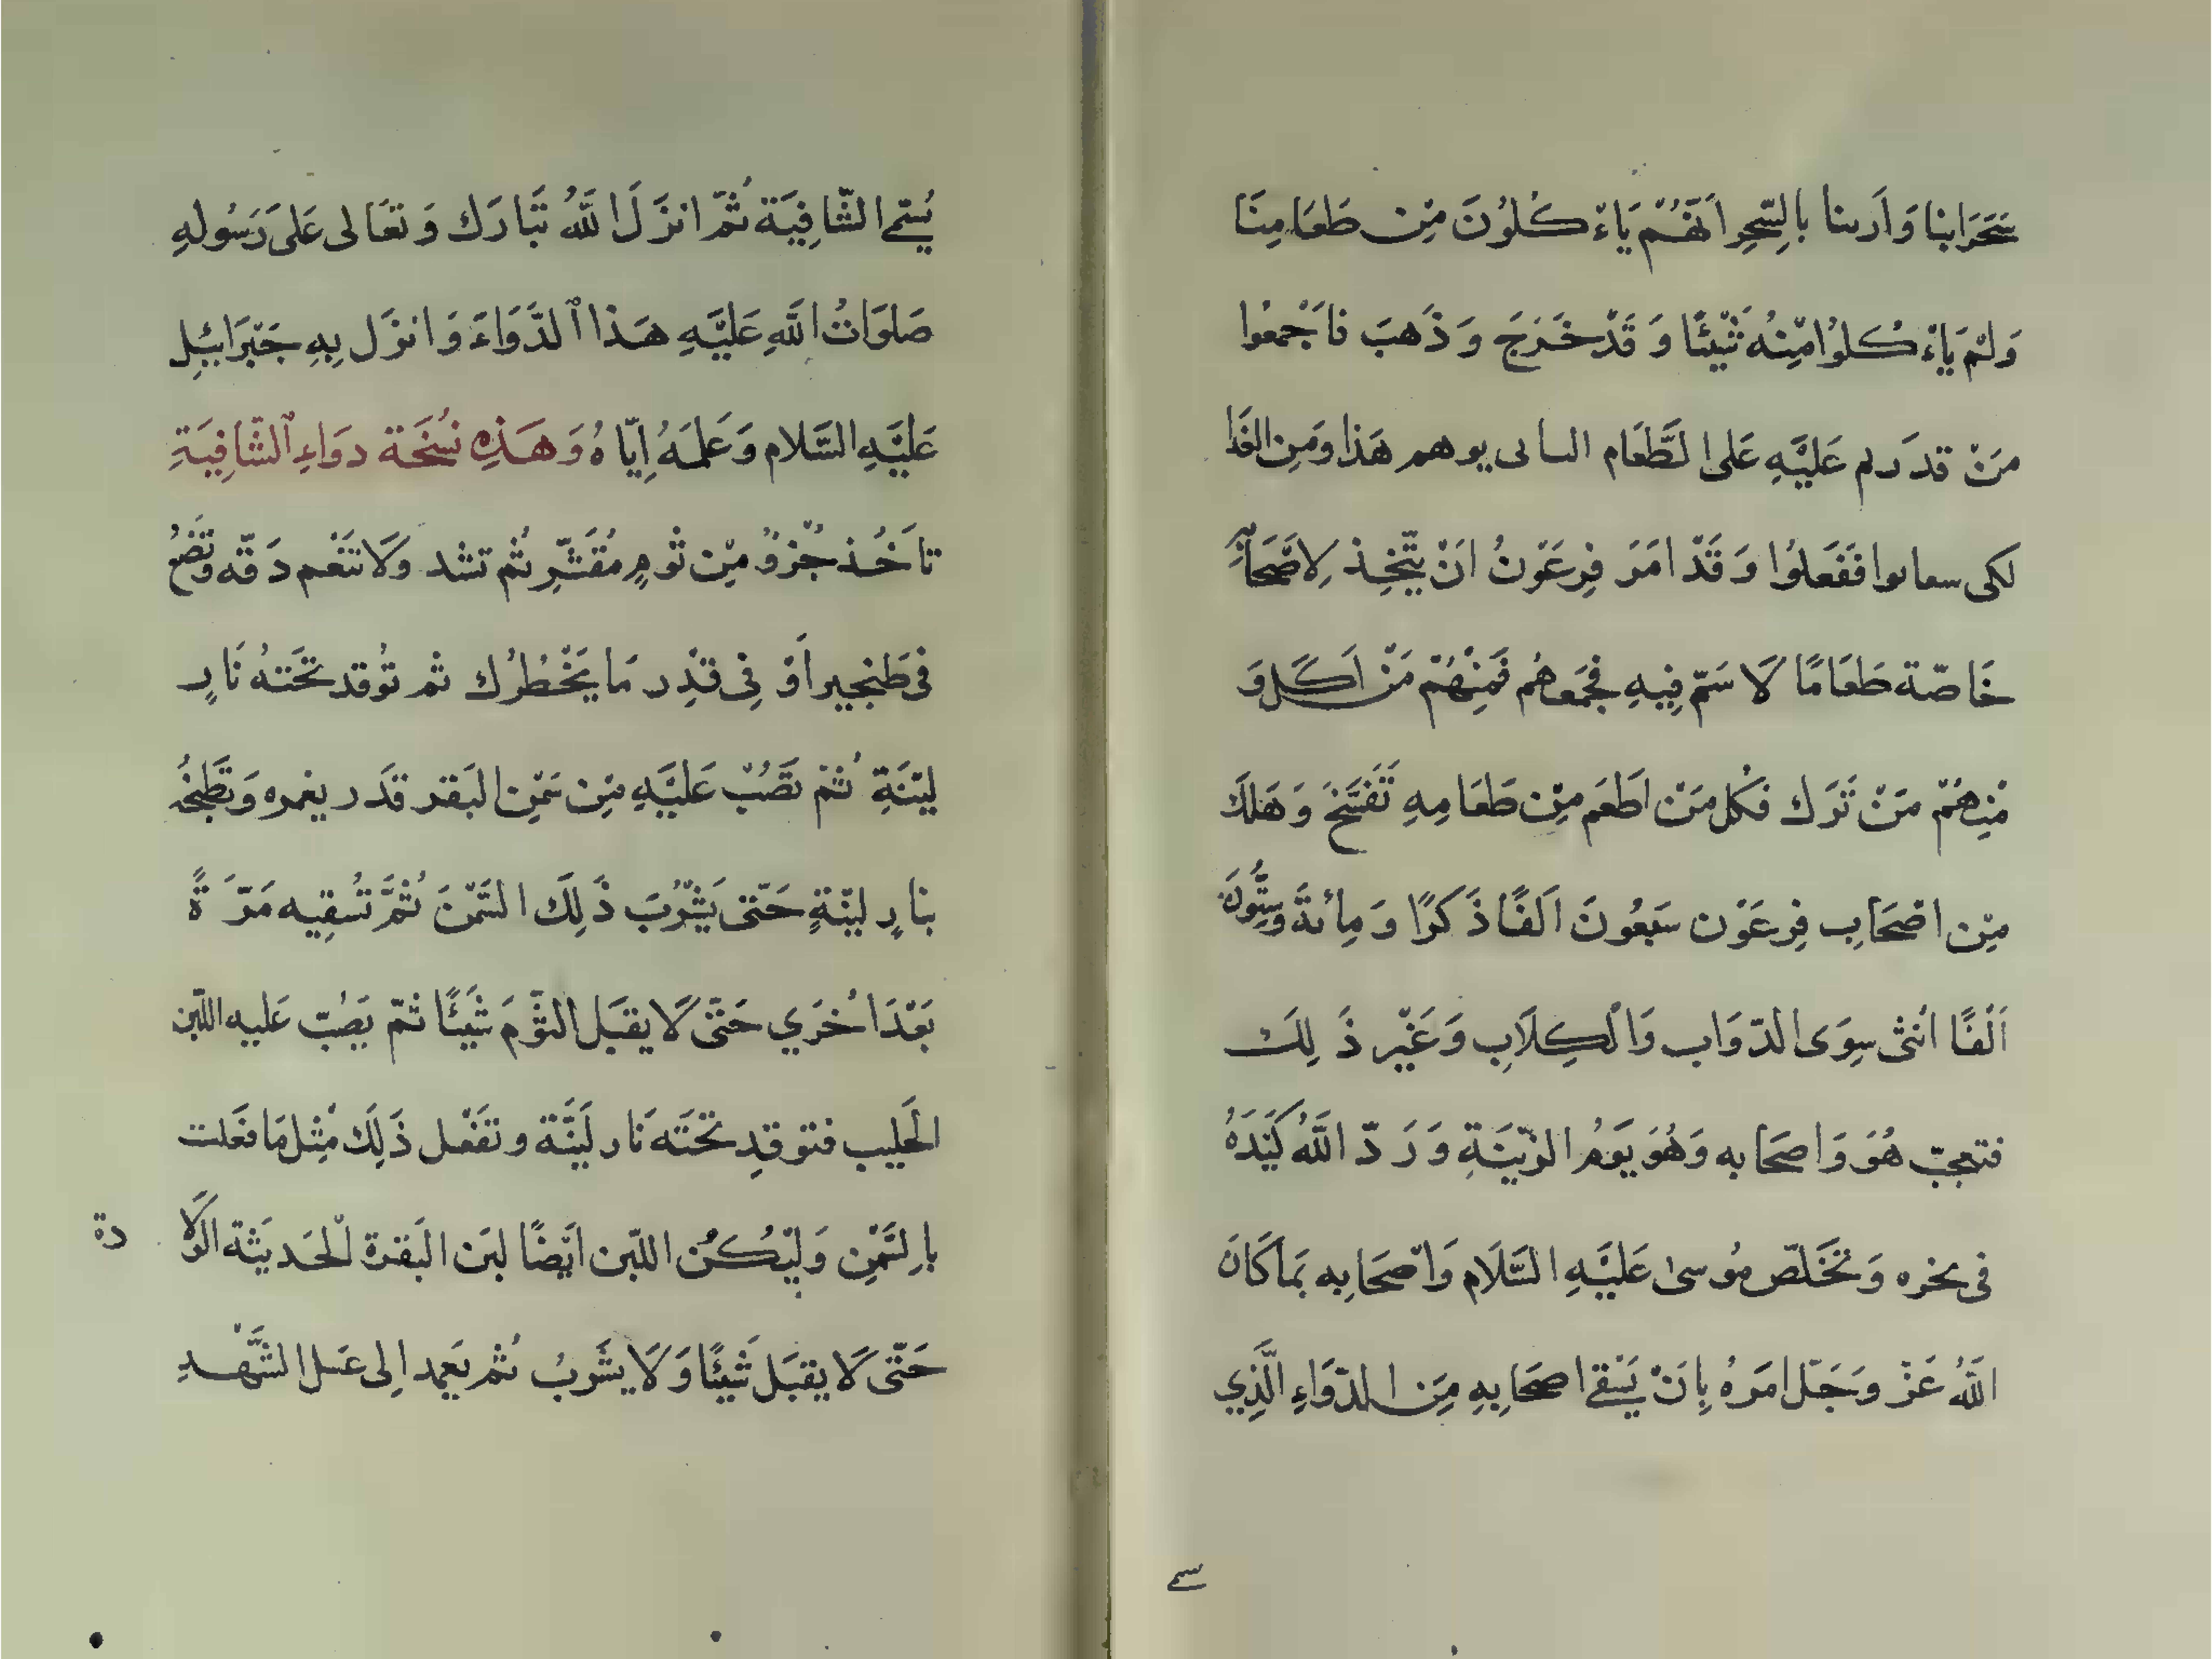 سَحَرَابنا وَاَرىنا بالسِّحِرِ اَنَّهُمْ يَاءْ كُلوُنَ مِنْ طَعَامِنَا
وَلمْ يَاءْ كُلوُا مِنْهُ شَيْئًا وَ قَدْ خَرَجَ وَ ذَهبَ فاَجْمعُوا
مَنْ قدرم عَليَّهِ عَلى الطَّعَام هَذا وَمَنِ
لكى فَفَعَلوُا وَقَدْ امَرَ فِرعَوْنُ انَ يتَّخِذ لِاصْحَابِهِ
خَاصّة طَعَامًا لَا سَمّ فِيهِ فجَمَعهُم فَمِنْهُمْ مَنْ اَكَل وَ
مْنِهُمْ مَنْ تَرَك فكُل مَنْ اطَعَم مِنْ طَعَامِهِ تَفَسَّخَ وَهَلكَ
مِنْ اصْحَابِ فِرعَوْن سَبَعُونَ الَفًا ذَكَرًا وَ مِائةَ وسِتُّونَ
اَلْفًا انُثى سِوَى الدّوَاب وَالْكِلاَبِ وَغَيْر ذَ لِكَ
فتعجبّ هُوَ وَاصحَابه وَهُوَ يَوَمُ الزّيَنَةِ وَ رَدّ اللَّهُ كَيَدَهُ
فى نحره وَتخَلصّ مُوسىٰ عَليَّهِ السَّلَام وَاصْحَابِه بمَا كَانَ
اللَّهُ عَزْ وَجَلّ امَرَهُ بِاَنْ يَسْقى اصحَابِهِ مِنَ الدّوَاءِ الَّذِي
يُسَمّى الشّافِيَة ثُمّ انزَلَ اللَّهُ تَبَارَك وَتعَالى عَلىَ رَسُولهِ
صَلوَاتُ اللَّهِ عَليَّهِ هَذا الدَّوَاءَ وَانزَل بِهِ جَبَرَائيلِ
عَليَّهِ السَّلام وَعَلمَهُ اِيّاهُ وَهَذِهِ نُسْخَة دوَاءِ الشّافِيَةِ
تاَخُذ جُزوٌ مِنْ ثوْمٍ مُقَشّرٍ ثُم تشد وَلَا تنَعْم دَقّه وَتَضَعُ
فى طَنجيِر اَوْ فِى قدْرِ مَا يَحْضُرُك ثم توُقد تَحْتهُ نَارٍ
ليّنَةِ ثُمْ تصَُبّ عَليَّهِ مِنْ سَمْنِ البَقر قدَر يغمره وَتطَّبخُه
بنارٍ ليّنةٍ حَتّى يَشْرَبَ ذَ لِكَ السَّمْنَ ثُمَّ تسُقِيه مَرّ َةً
بَعْدَ اُخرَي حَتّى لَا يقبَل الثّوَمَ شَيئًا ثمّ يَصُبّ عَليهِ اللّبن
الحَليب فتوقدِ تحَتَه نَار لَينَّة وتفَعْل ذَلِكَ مْثِل مَا فعَلت
باِلسَّمْنِ وَليْكُنُ اللّبن ايَضًا لبَن البَقرة الْحَديَثة الوَلَا دة
حَتّى لَا يقبَل شَيْئًا وَلَا يشَرَبُ ثم يَعِمد اِلى عَسل الشَّهْدِ